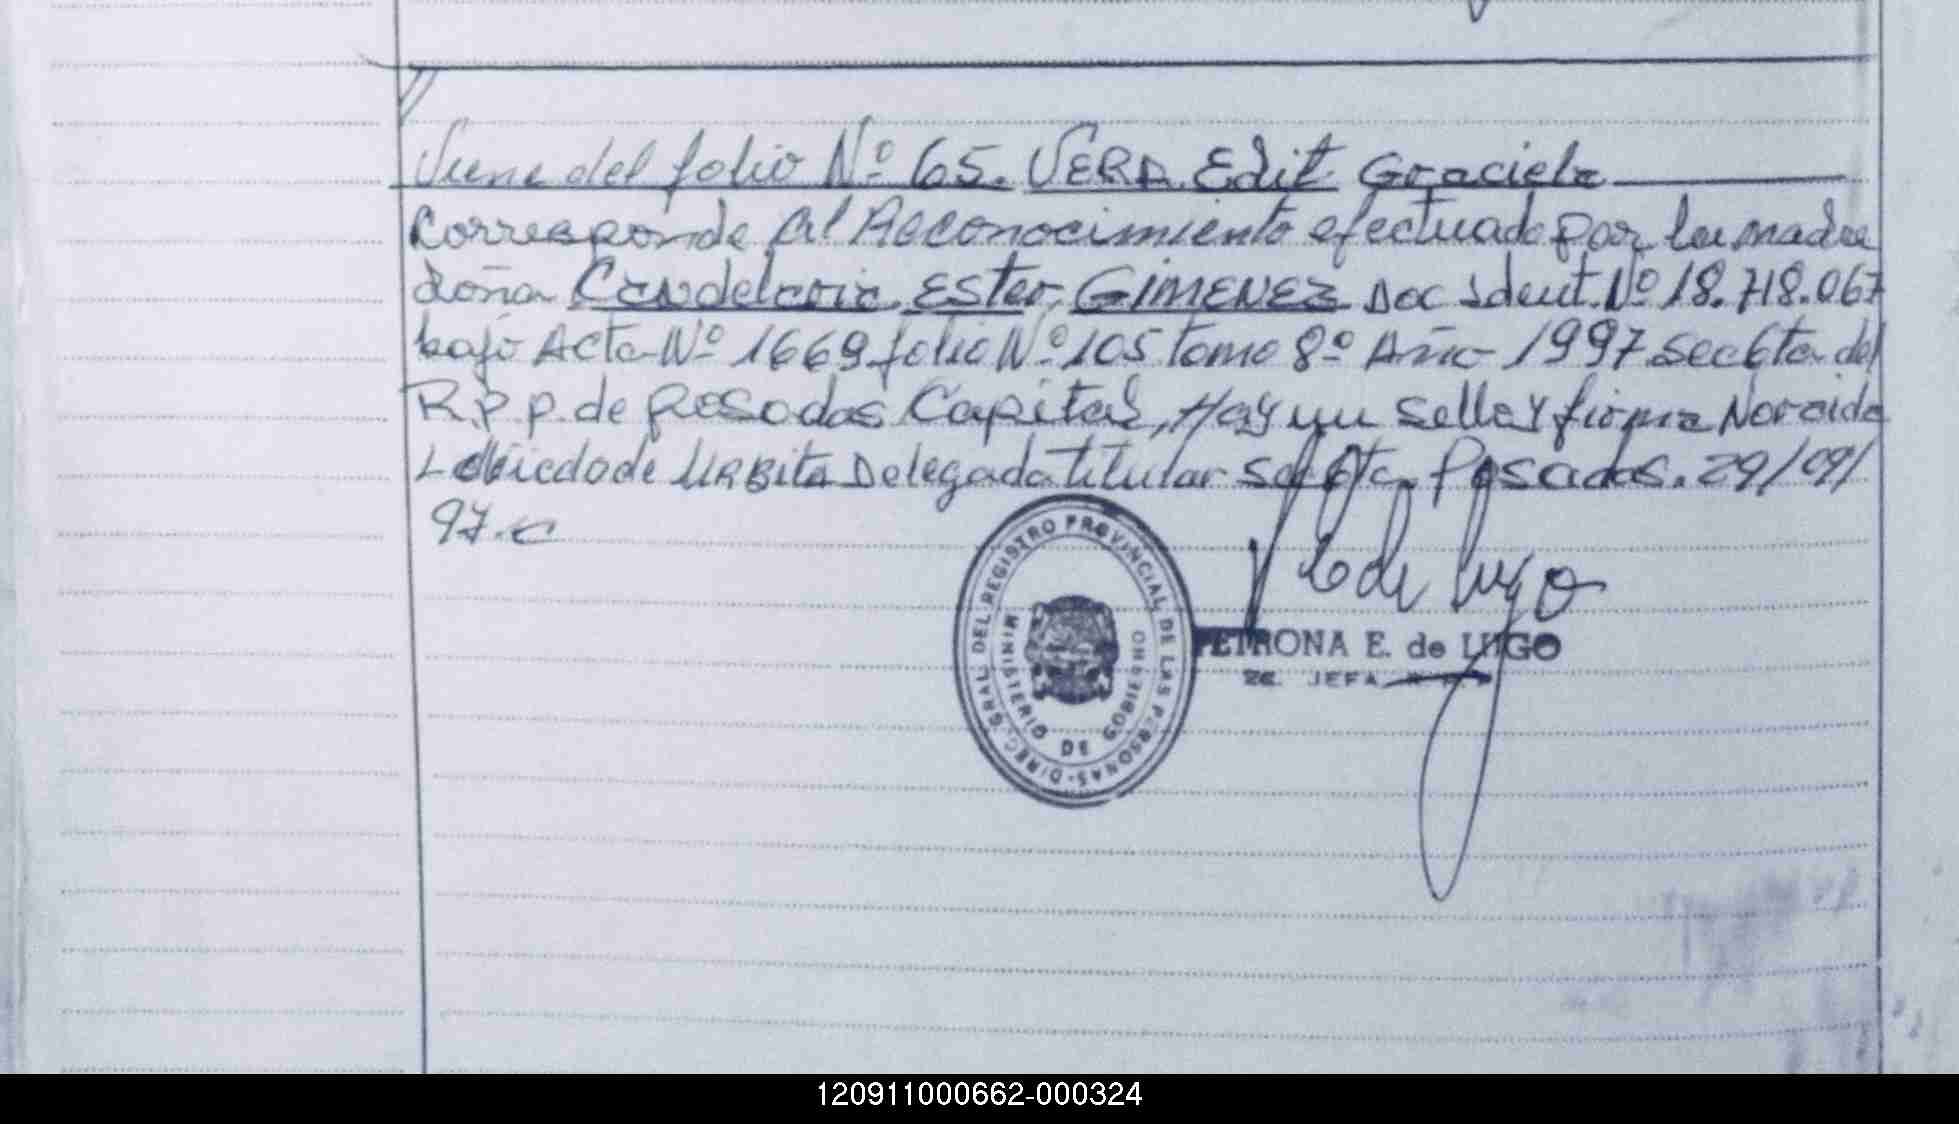 Viene del folio Nº 65. VERA Edit Graciela
Corresponde al Reconocimiento efectuado por la madre
doña Candelaria Ester GIMENEZ Doc Ident. Nº 18.718.067
bajo Acta Nº 1669 folio Nº 105 tomo 8º Año 1997 Sec 6ta del
R.P.P. de Posadas Capital, Hay un sello y firma Noraida
de URBITA Delegada titular Sec 6ta Posadas. 29/09/
97.
DIREC. GRAL. DEL REGISTRO PROVINCIAL DE LAS PERSONAS
MINISTERIO DE GOBIERNO
PETRONA E. de LUGO
2a. JEFA
120911000662-000324